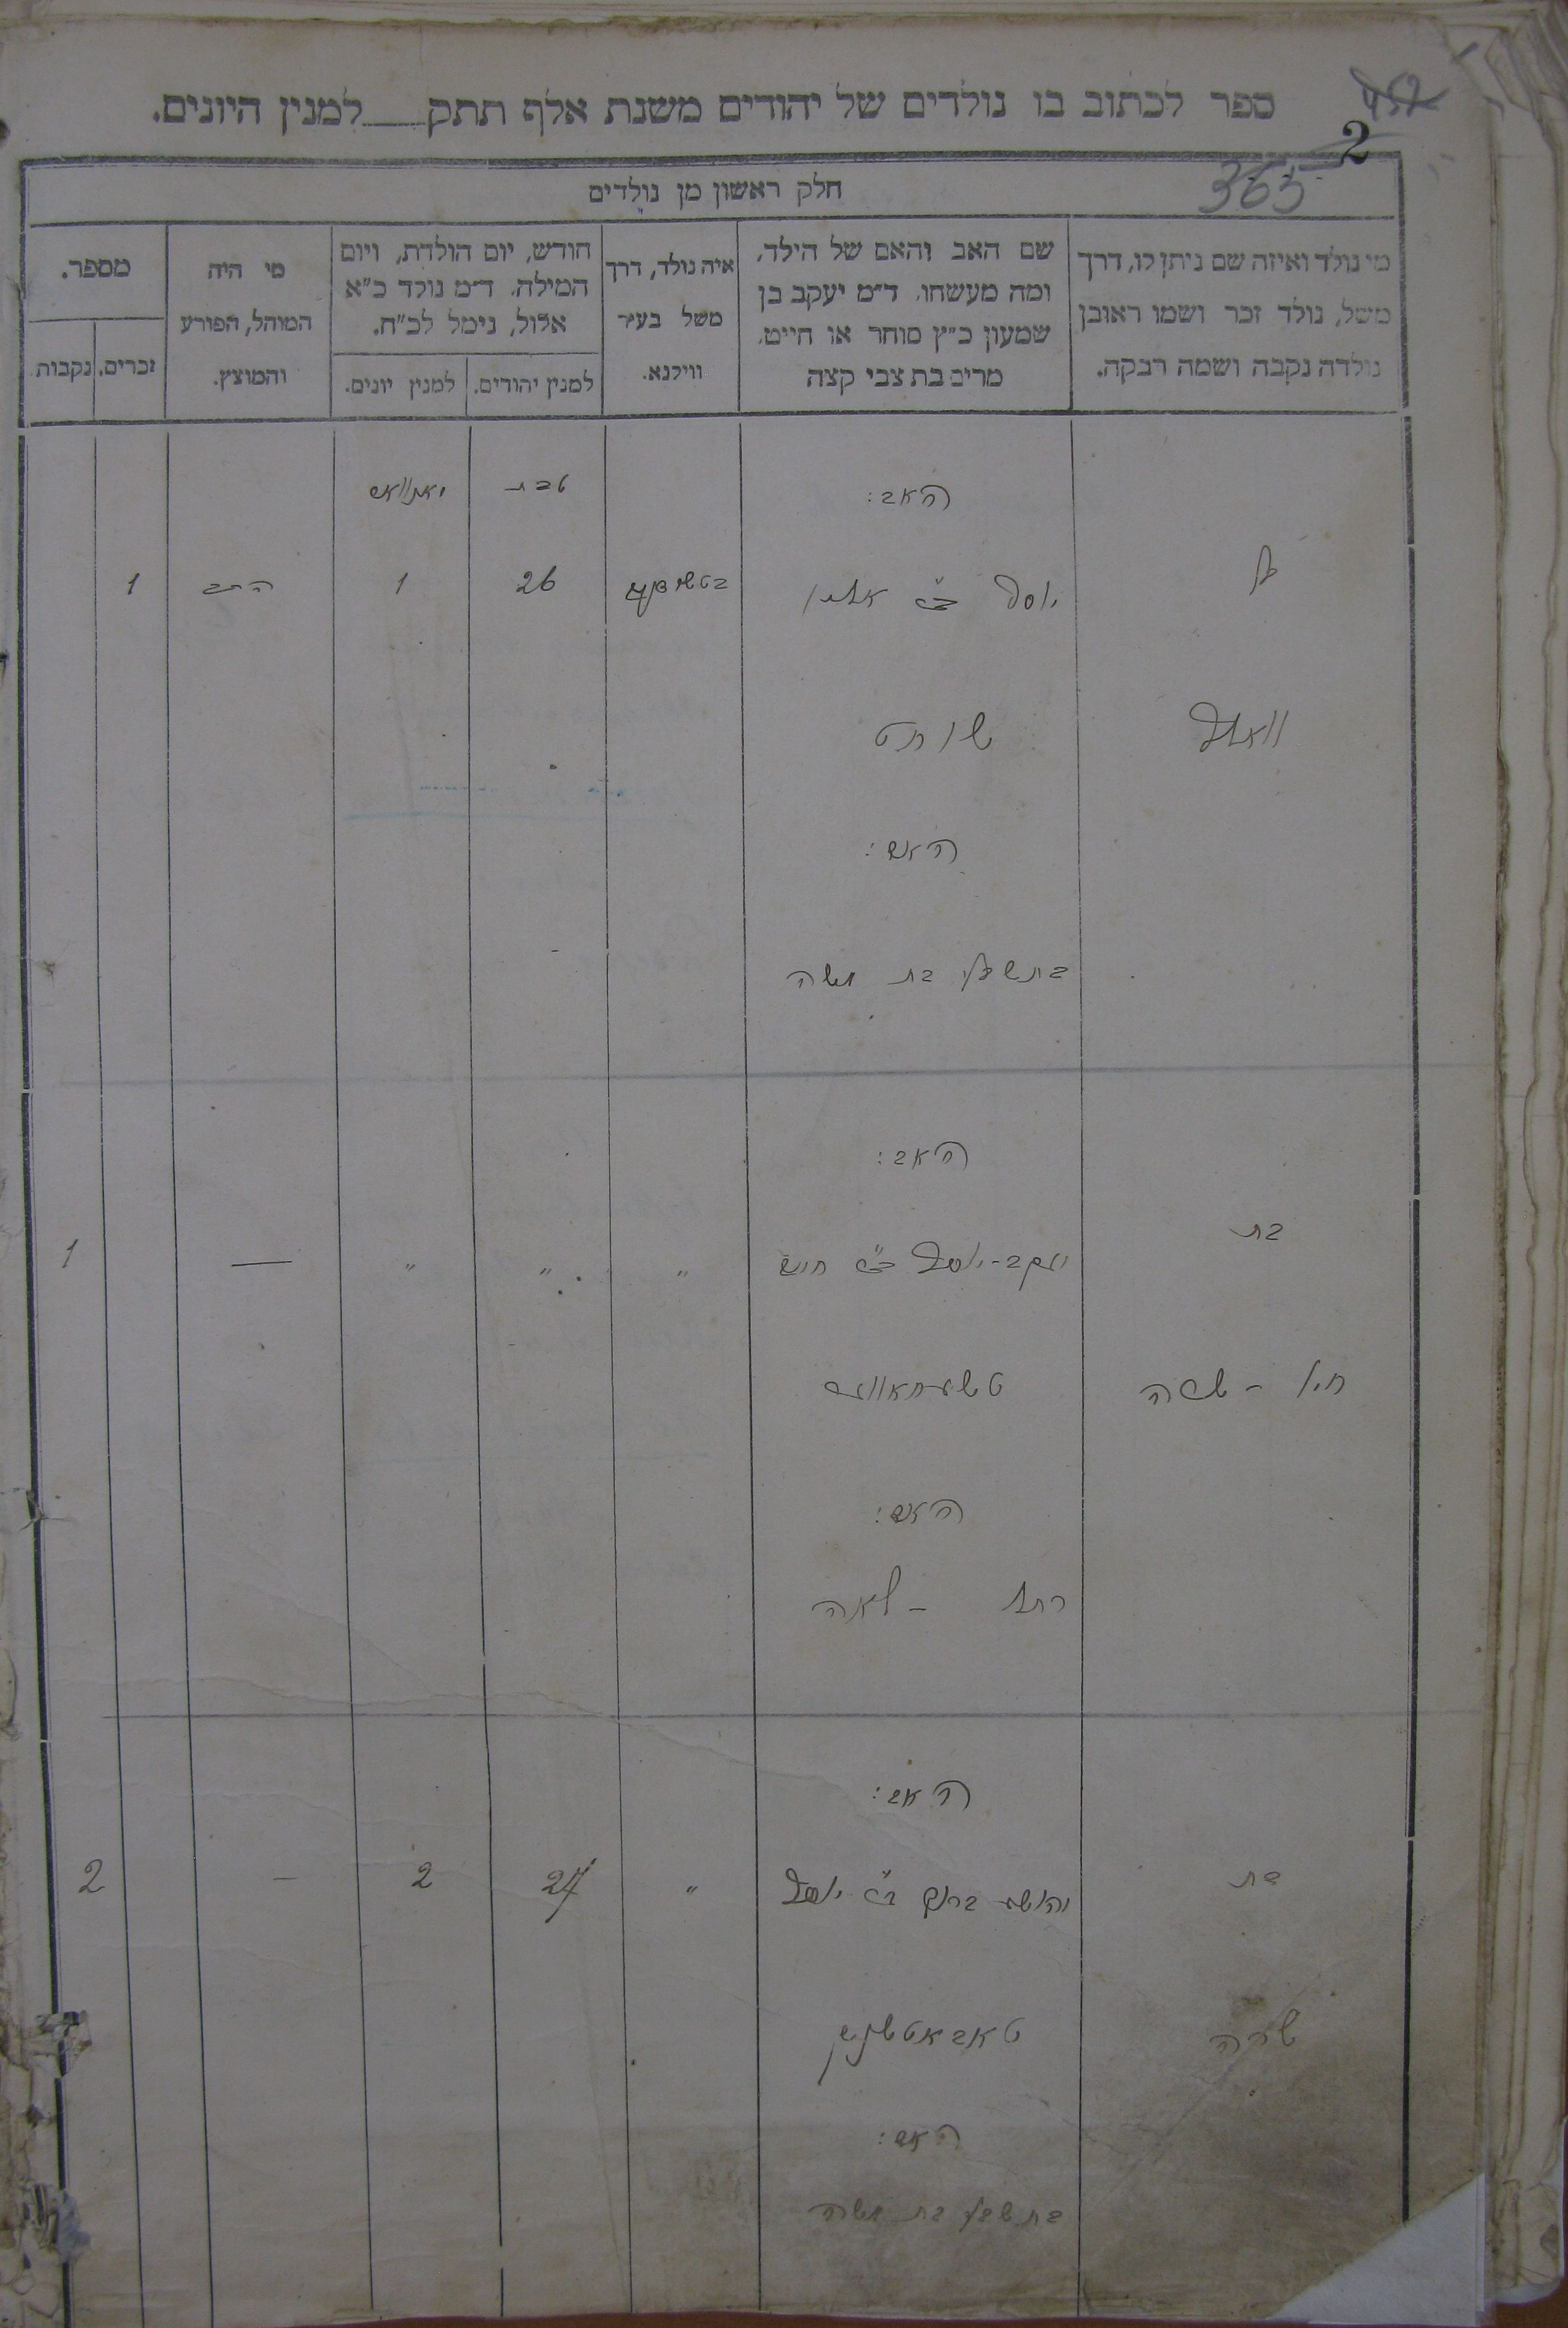 ספר לכתוב בו נולדים של יהודים משנת אלף תתק___למנין היונים.
2
363
חלק ראשון מן נולדים
מי נולד ואיזה שם ניתן לו, דרך
משל, נולד זכר ושמו ראובן
נולדה נקבה ושמה רבקה.
שם האב והאם של הילד,
ומה מעשהו. ד״מ יעקב בן
שמעון כ״ץ סוחר או חייט,
מרים בת צבי קצה
איה נולד, דרך
משל בעיר
ווילנא.
חודש, יום הולדת, ויום
המילה. ד״מ נולד כ״א
אלול, נימל לכ״ח.
למנין יהודים.
למנין יונים.
מי היה
המוהל, הפורע
והמוצץ.
מספר.
זכרים.
נקבות
האב:
טבת
יאנוואר
בן
יוסף
26
1
הרב
1
וואלף
האם:
בת שבע בת משה
האב:
בת
יעקב-יוסף ב״ר חיים
"
"
"
—
1
האם:
רחל - לאה
האב:
בת
יהושע ברוך ב״ר יוסף
"
27
2
-
2
שרה
האם:
בת שבע בת משה